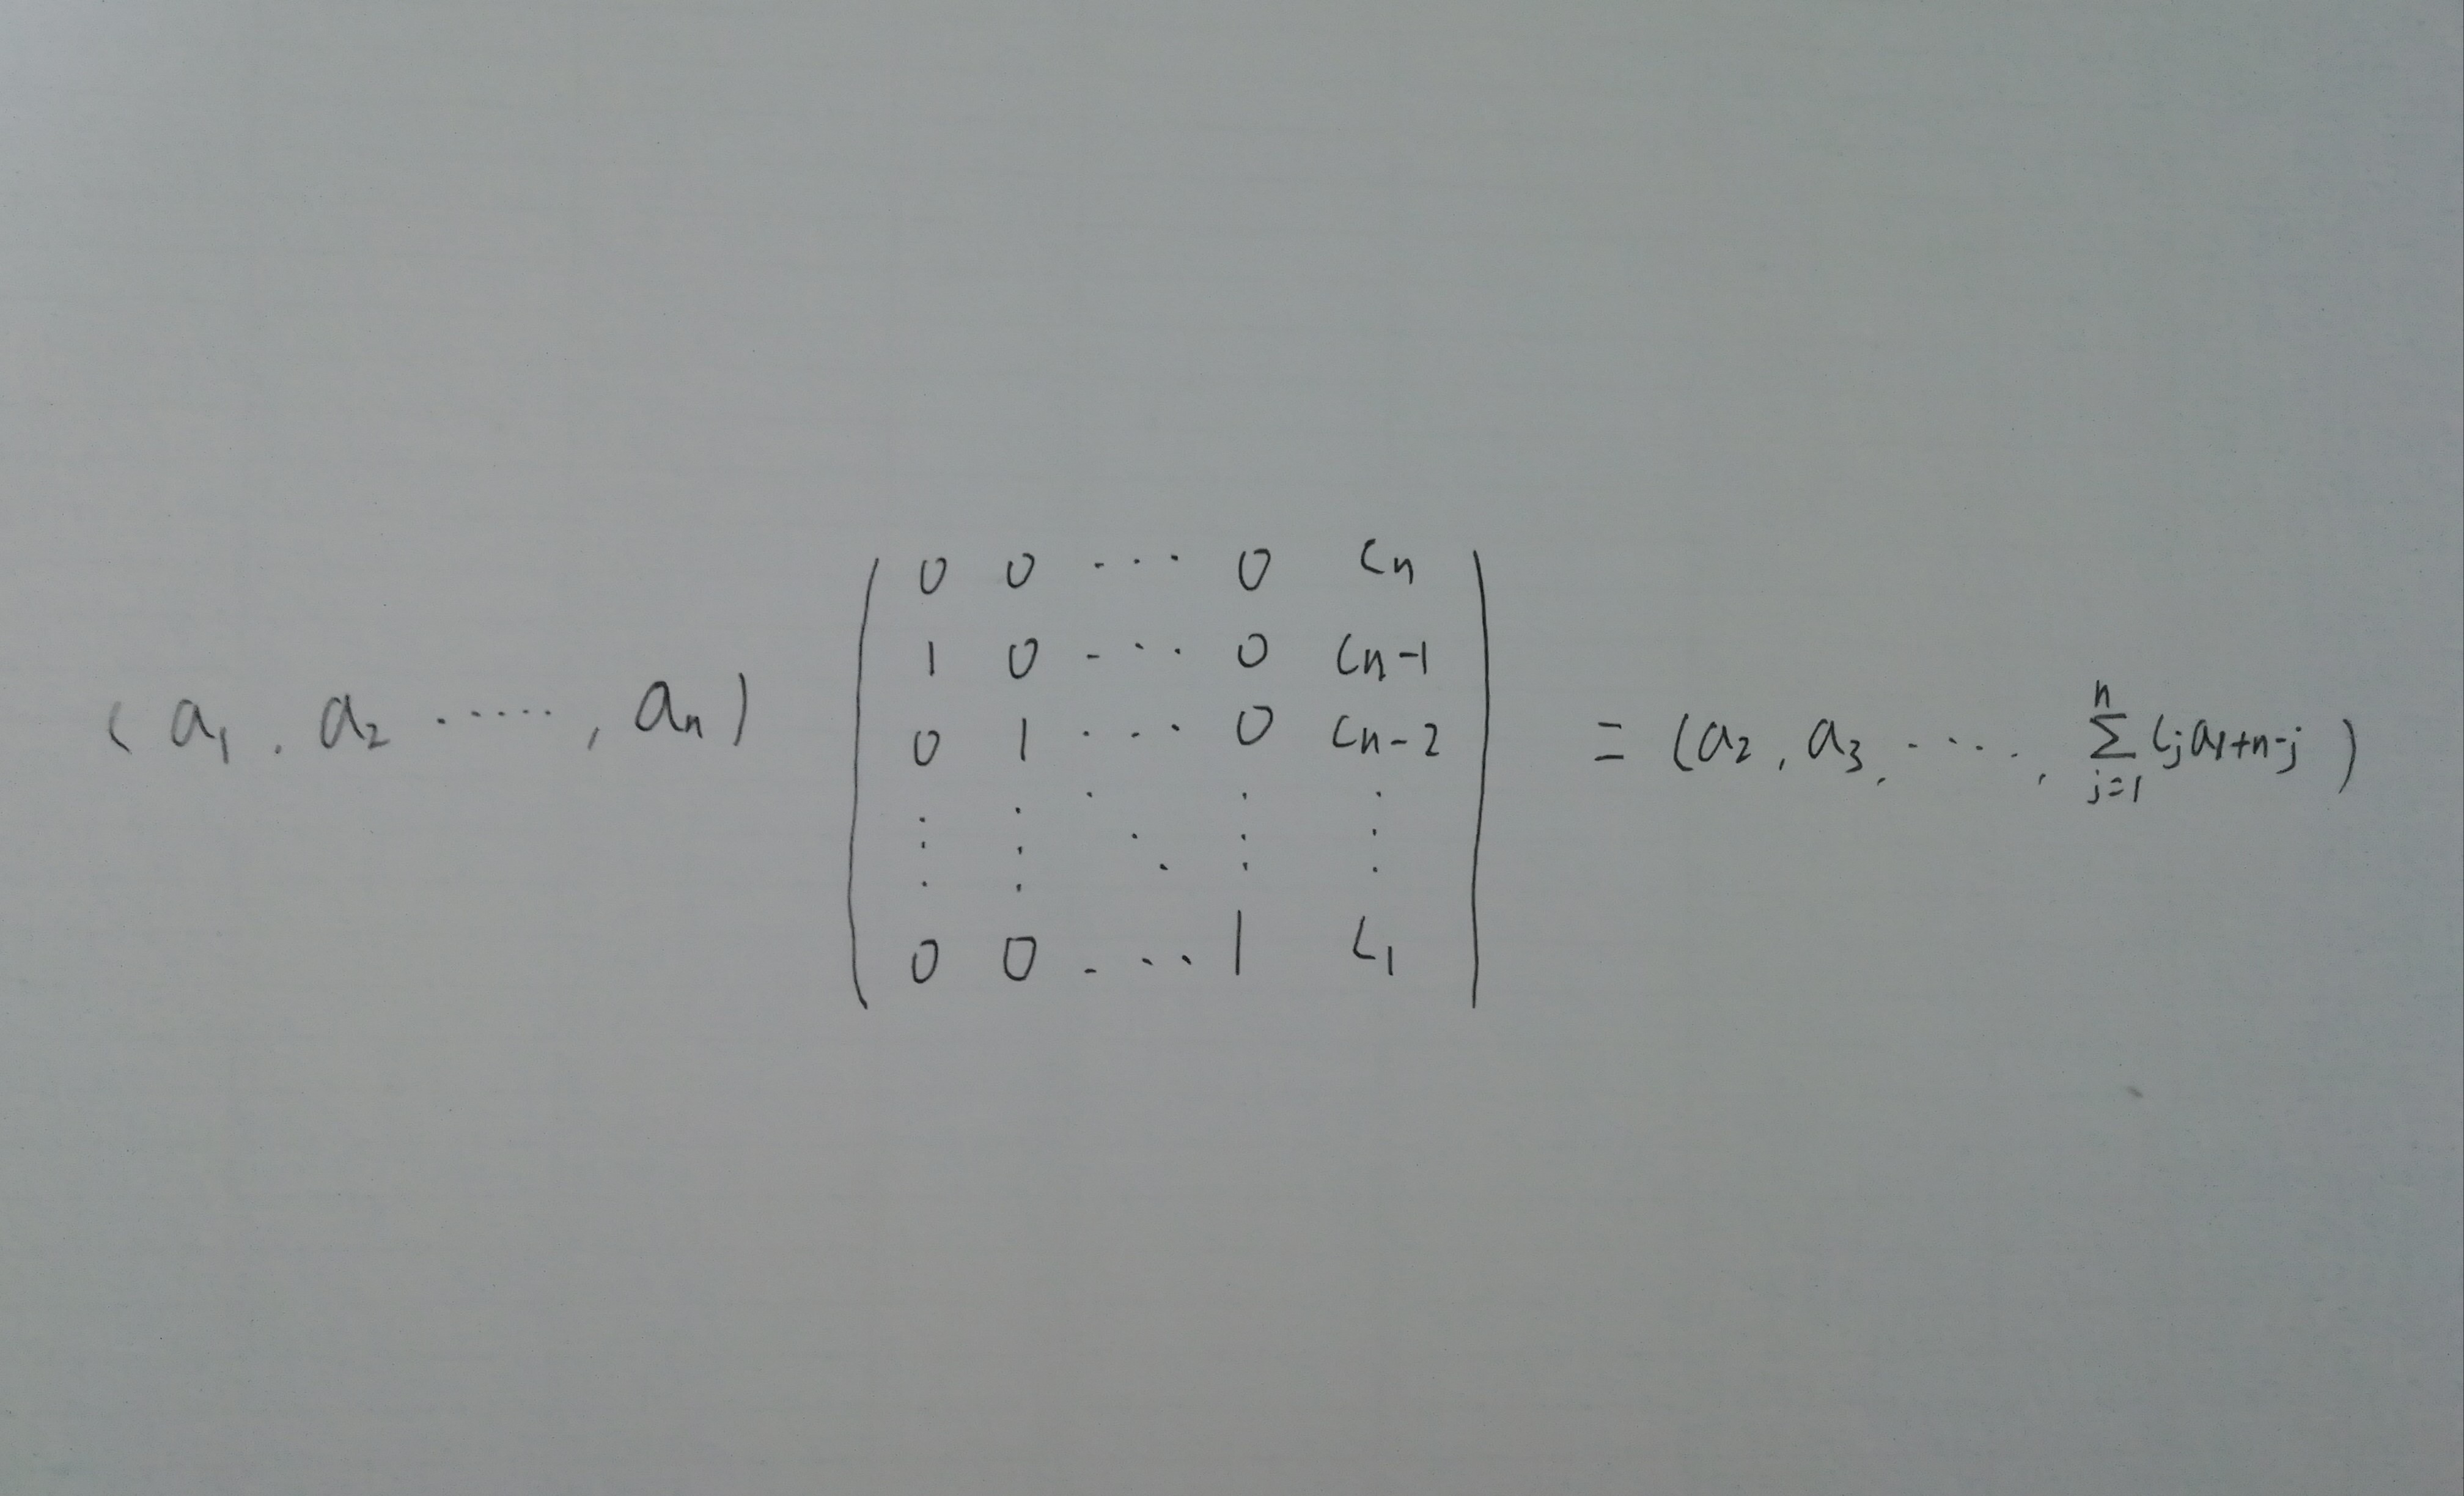 (a₁, a₂ ······, aₙ) ( 0 0 ··· 0 cₙ
1 0 ··· 0 cₙ₋₁
0 1 ··· 0 cₙ₋₂
⋮ ⋮ ⋱ ⋮ ⋮
0 0 ··· 1 c₁ ) = (a₂, a₃, ····, ∑ⱼ₌₁ⁿ cⱼa₁₊ₙ₋ⱼ)